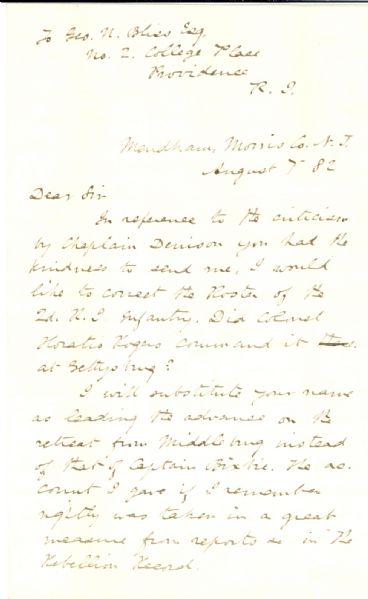 To Geo. N. Bliss Esq.
No. 2. College Place
Providence
R. I.
Mendham, Morris Co. N. J.
August 7 82
Dear Sir
In reference to the criticism
by Chaplain Denison you had the
kindness to send me, I would
like to correct the Roster of the
2d. R. I. Infantry. Did Colonel
Horatio Rogers command it
at Gettysburg?
I will substitute your name
as leading the advance on the
retreat from Middleburg instead
of that of Captain Bixbie. The ac-
count I gave if I remember
rightly was taken in a great
measure from reports as in the
Rebellion Record.